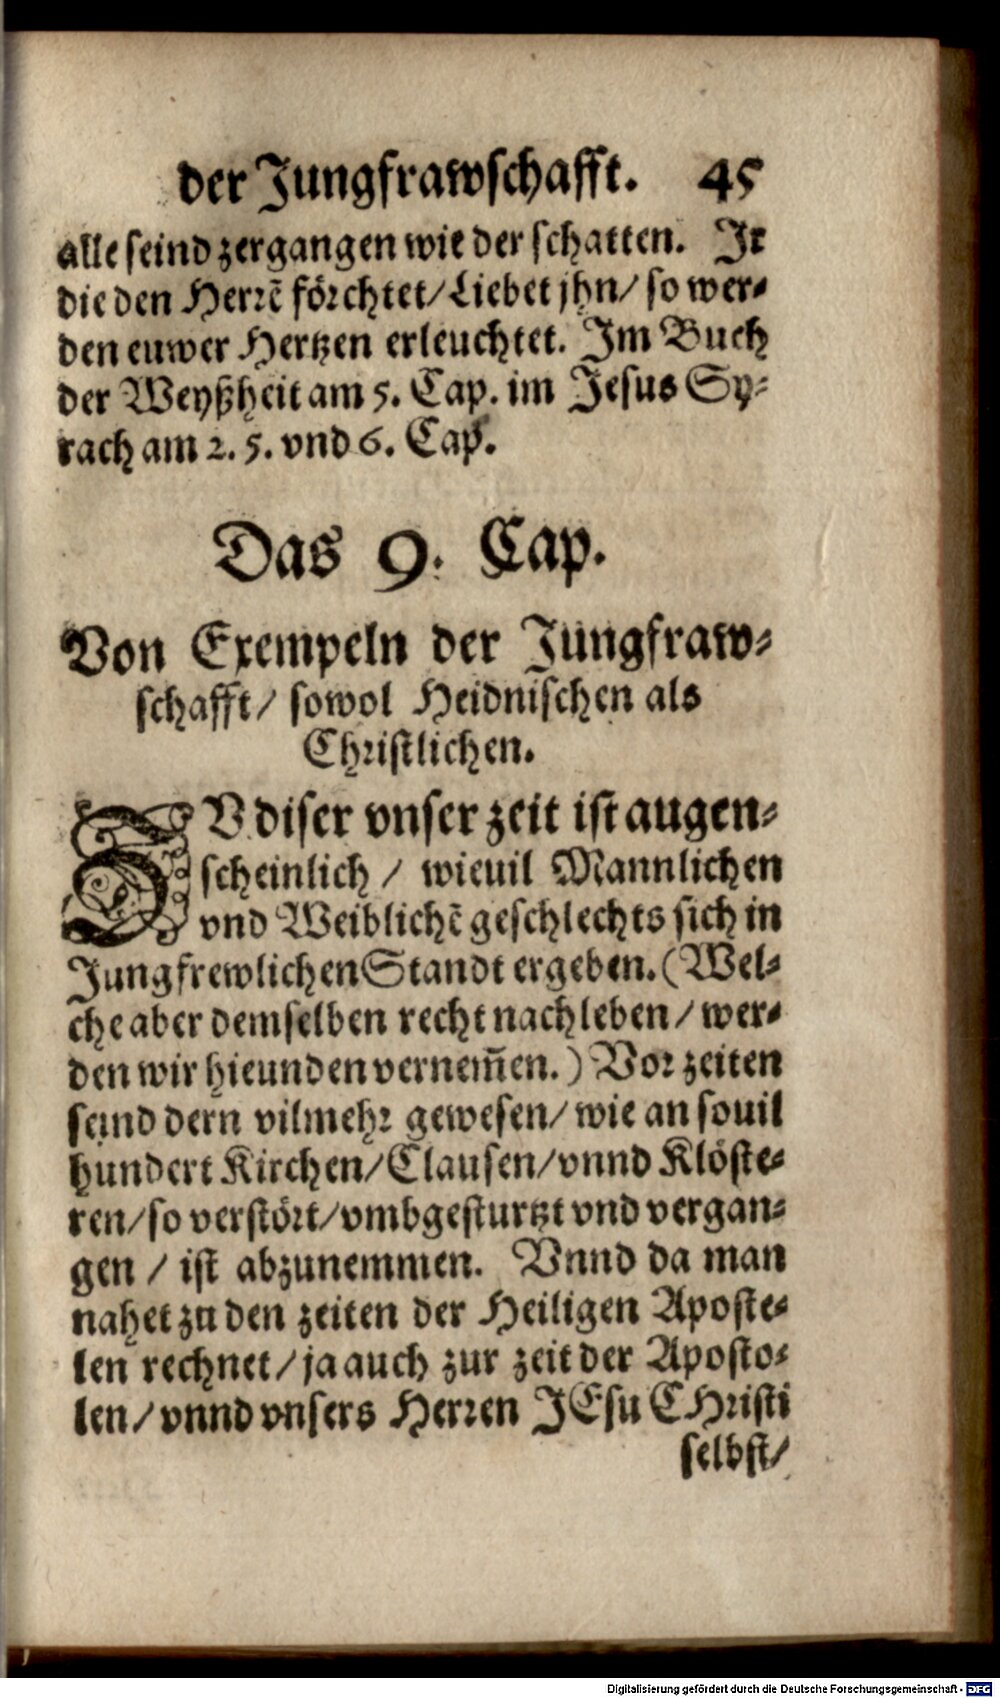 der Jungfrawschafft. 45
alle seind zergangen wie der schatten. Ir
die den Herrẽ förchtet/ Liebet jhn/ so wer-
den euwer Hertzen erleuchtet. Im Buch
der Weyßheit am 5. Cap. im Jesus Sy-
rach am 2. 5. vnd 6. Cap.
Das 9. Cap.
Von Exempeln der Jungfraw-
schafft/ sowol Heidnischen als
Christlichen.
ZV diser vnser zeit ist augen-
scheinlich / wieuil Mannlichen
vnd Weiblichẽ geschlechts sich in
Jungfrewlichen Standt ergeben. (Wel-
che aber demselben recht nachleben / wer-
den wir hieunden vernem̃en.) Vor zeiten
seind dern vilmehr gewesen/ wie an souil
hundert Kirchen/ Clausen/ vnnd Klöste-
ren/ so verstört/ vmbgesturtzt vnd vergan-
gen / ist abzunemmen. Vnnd da man
nahet zu den zeiten der Heiligen Aposte-
len rechnet/ ja auch zur zeit der Aposto-
len/ vnnd vnsers Herren JEsu CHristi
selbst/
Digitalisierung gefördert durch die Deutsche Forschungsgemeinschaft - DFG